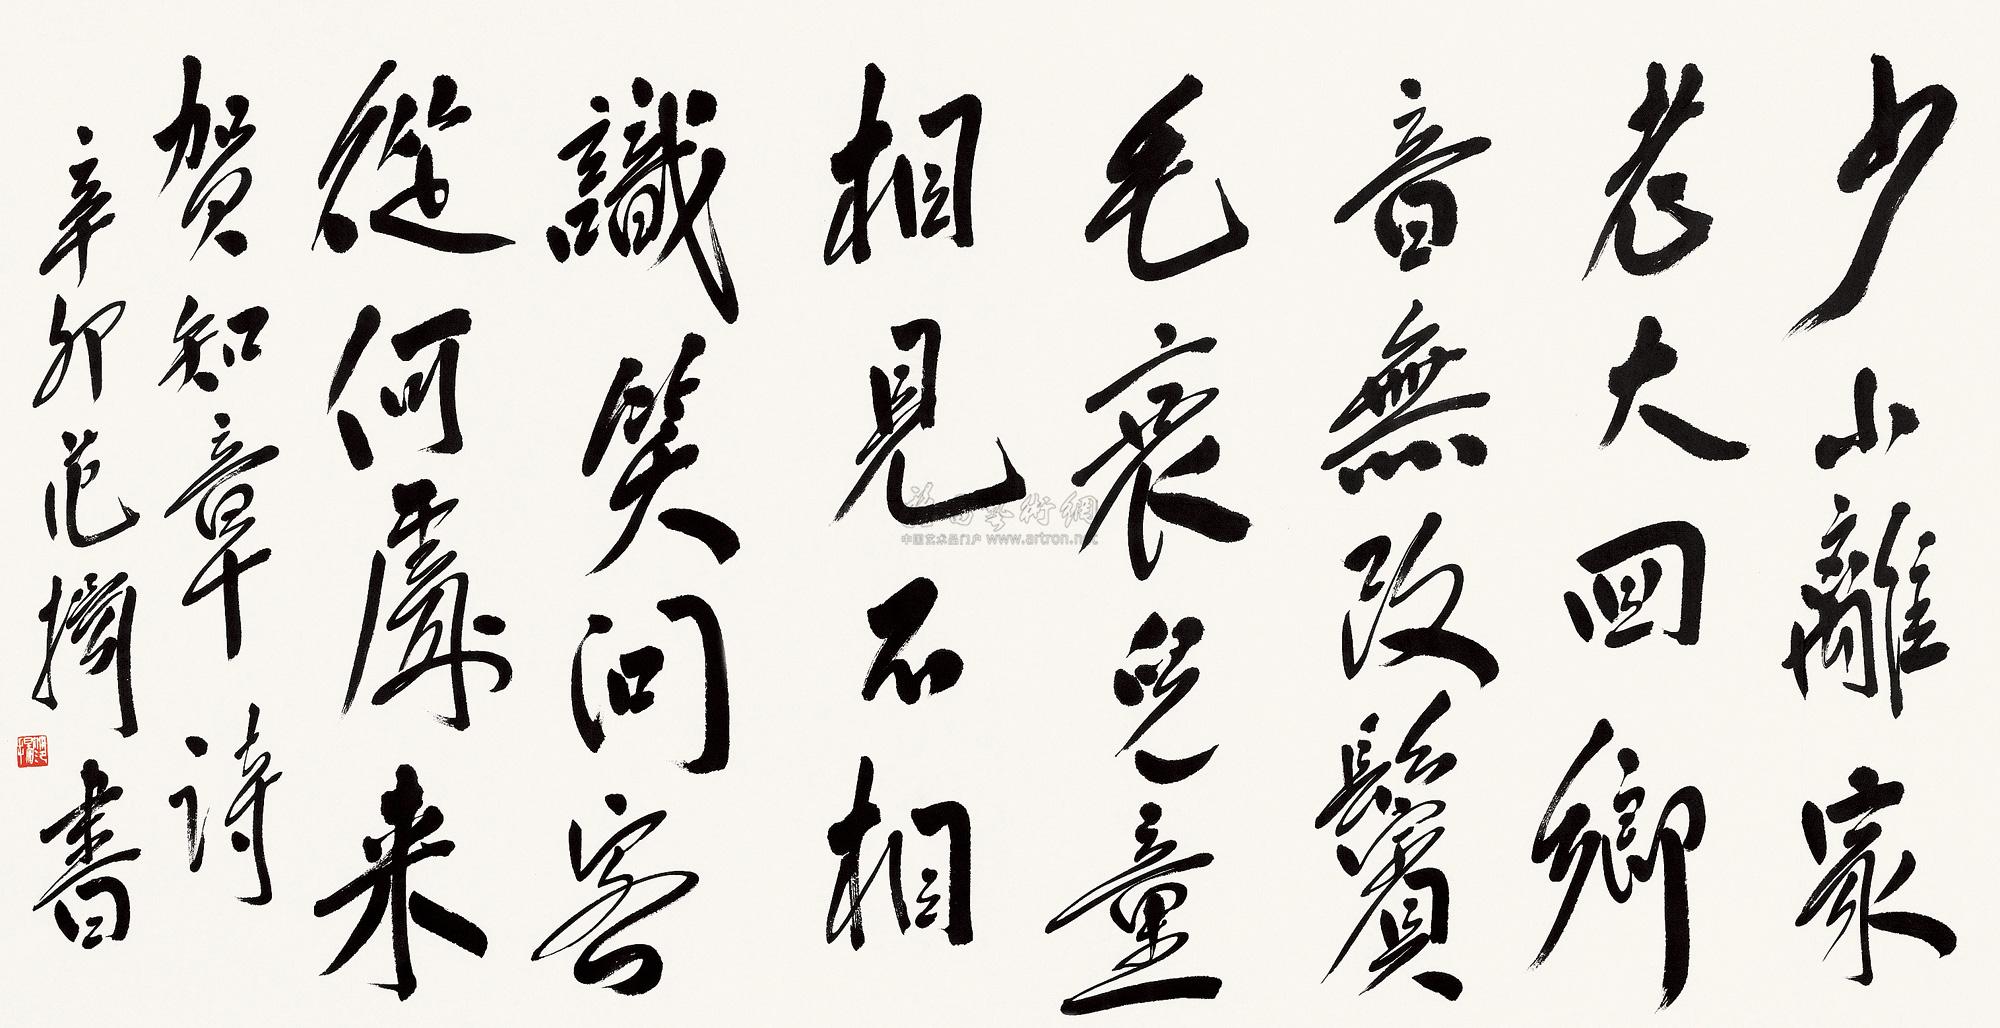 少小離家
老大回鄉
音無改鬢
毛衰兒童
相見不相
識笑問客
從何處来
賀知章詩
辛卯范書
雅昌藝術網
中国艺术品门户 www.artron.net